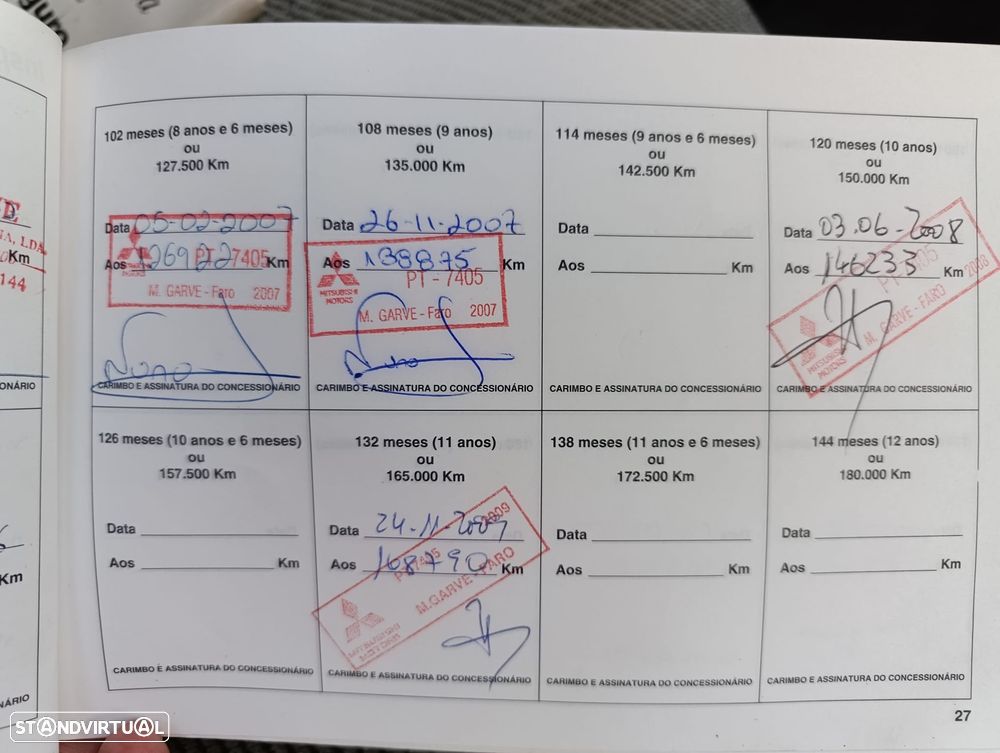 102 meses (8 anos e 6 meses)
ou
127.500 Km
Data 05-02-2007
Aos 126922 Km
PT-7405
MITSUBISHI
MOTORS
M. GARVE - Faro 2007
Nuno
CARIMBO E ASSINATURA DO CONCESSIONÁRIO
108 meses (9 anos)
ou
135.000 Km
Data 26-11-2007
Aos 138875 Km
PT - 7405
MITSUBISHI
MOTORS
M. GARVE - Faro 2007
Nuno
CARIMBO E ASSINATURA DO CONCESSIONÁRIO
114 meses (9 anos e 6 meses)
ou
142.500 Km
Data
Aos Km
CARIMBO E ASSINATURA DO CONCESSIONÁRIO
120 meses (10 anos)
ou
150.000 Km
Data 03.06-2008
Aos 146233 Km
2008
MITSUBISHI
MOTORS
M. GARVE - FARO
CARIMBO E ASSINATURA DO CONCESSIONÁRIO
126 meses (10 anos e 6 meses)
ou
157.500 Km
Data
Aos Km
CARIMBO E ASSINATURA DO CONCESSIONÁRIO
132 meses (11 anos)
ou
165.000 Km
Data 24-11-2009
2009
Aos 168790 Km
MITSUBISHI
MOTORS
M. GARVE - FARO
CARIMBO E ASSINATURA DO CONCESSIONÁRIO
138 meses (11 anos e 6 meses)
ou
172.500 Km
Data
Aos Km
CARIMBO E ASSINATURA DO CONCESSIONÁRIO
144 meses (12 anos)
ou
180.000 Km
Data
Aos Km
CARIMBO E ASSINATURA DO CONCESSIONÁRIO
27
LDA
Km
144
ONÁRIO
Km
NÁRIO
STANDVIRTUAL